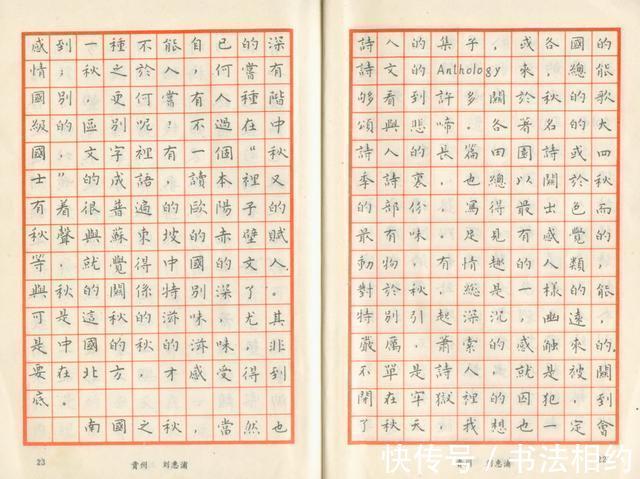 詩人的集子，或各國的
詩文的Anthology來，總能
够看到許多關於秋的歌
頌與悲啼。各著名的大
詩人的長篇田園詩或四
季詩裏，也總以關於秋
的部份，寫得最出色而
最有味。足見有感覺的
動物，有情趣的人類，
對於秋，總是一樣的能
特別引起深沉，幽遠，
嚴厲，蕭索的感觸來的。
不單是詩人，就是被關
閉在牢獄裡的囚犯，到
了秋天，我想也一定會
貴州 刘惠浦
22
感到一種不能自已的深
情；秋之於人，何嘗有
國別，更何嘗有人種階
級的區別呢？不過在中
國，文字裡有一個“秋
士”的成語，讀本裡又
有着很普遍的歐陽子的
秋聲與蘇東坡的赤壁賦
等，就覺得中國的文人，
與秋的關係特別深了。
可是這秋的滋味，尤其
是中國的秋的滋味，非
要在北方，才感受得到
底。
南國之秋，當然也
23 貴州 刘惠浦
快传号/书法相约